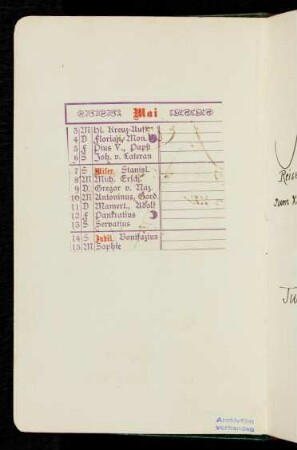 Mai
3 M hl. Kreuz-Auff.
4 D Florian, Mon.
5 F Pius V., Papst
6 S Joh. v. Lateran
7 S Miser. Stanisl.
8 M Mich. Ersch.
9 D Gregor v. Naz.
10 M Antoninus, Gord.
11 D Mamert., Adolf
12 F Pankratius
13 S Servatius
14 S Jubil. Bonifazius
15 M Sophie
Reise
zum
Archivfilm
vorhanden